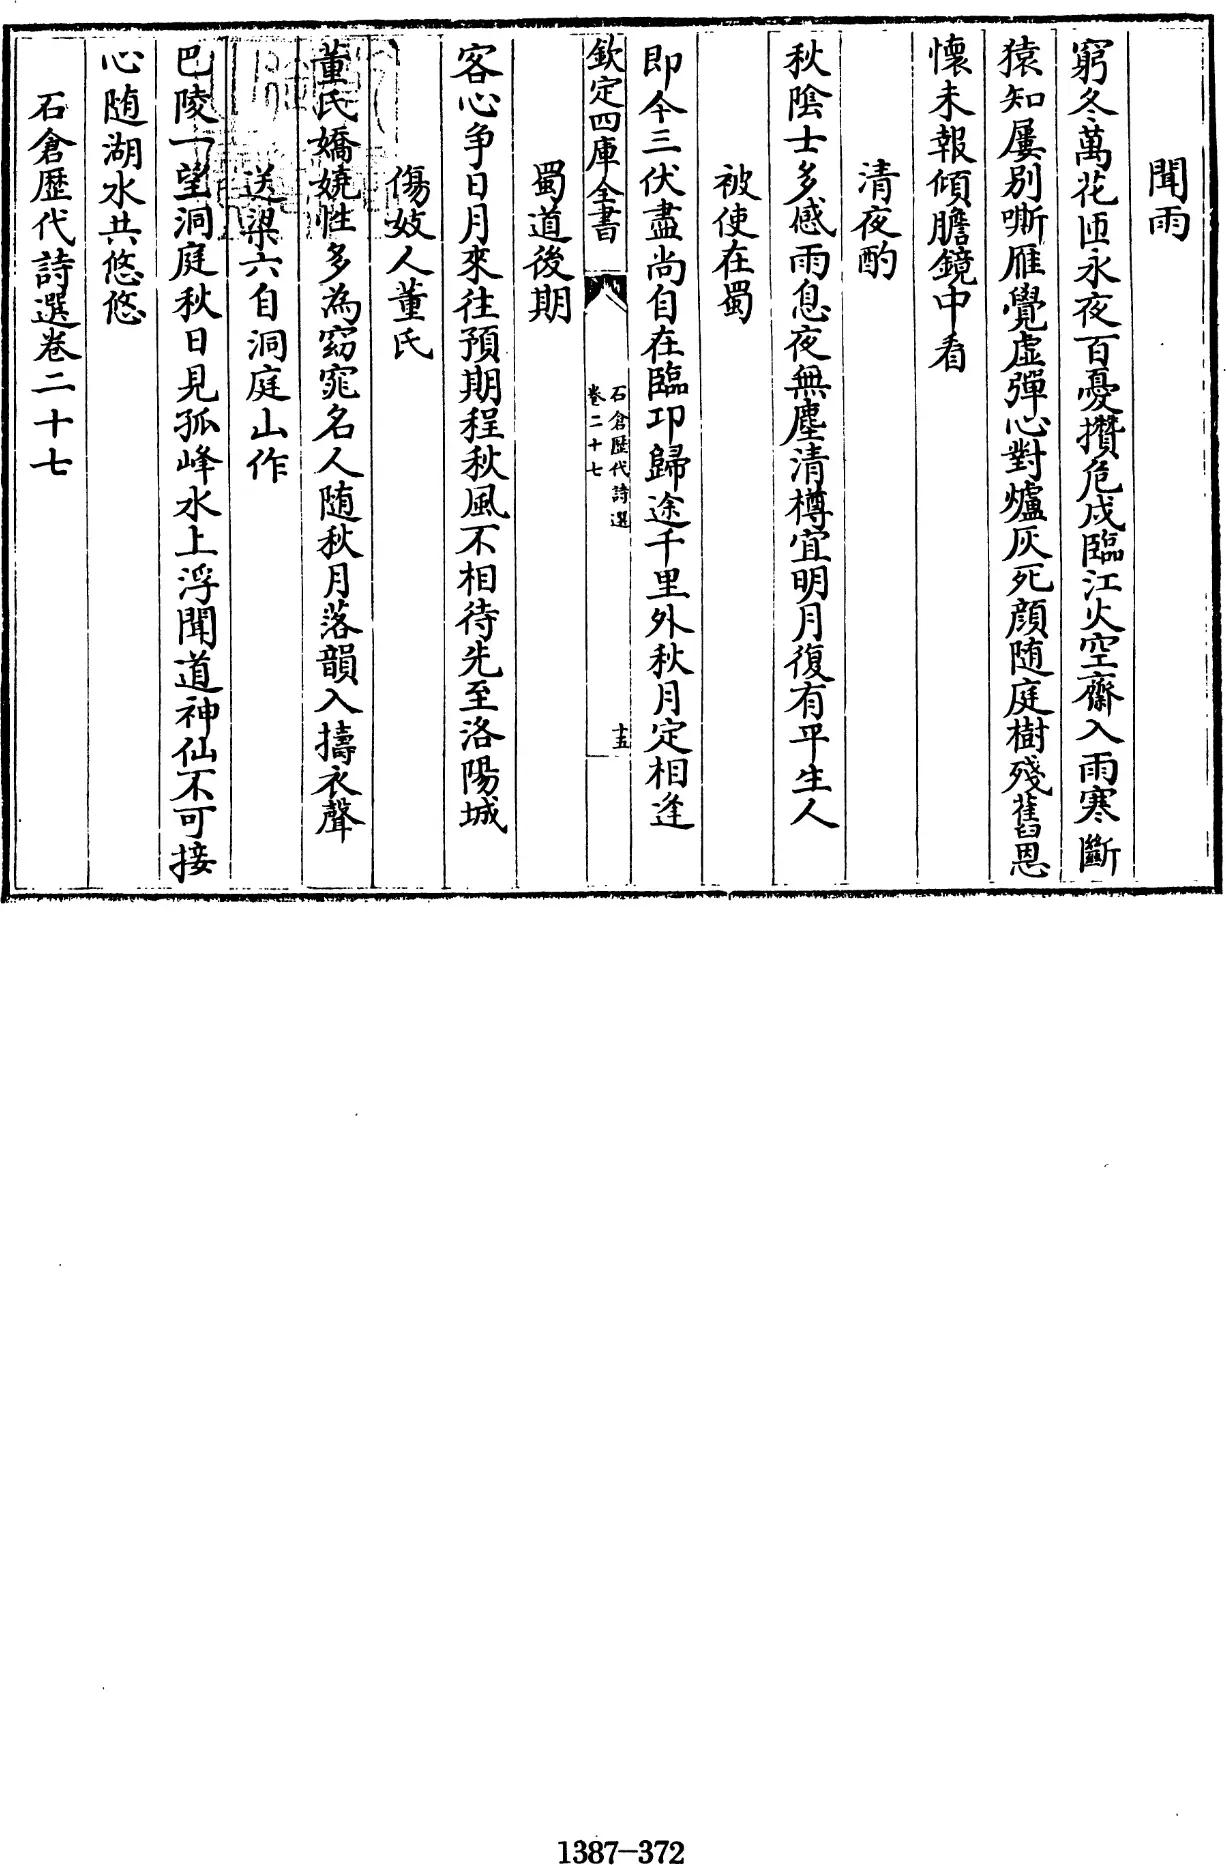 聞雨
窮冬萬花匝永夜百憂攢危戍臨江火空齋入雨寒斷
猿知屢别嘶雁覺虚彈心對爐灰死顔随庭樹殘舊恩
懐未報傾膽鏡中看
清夜酌
秋陰士多感雨息夜無塵清樽宜明月復有平生人
被使在蜀
即今三伏盡尚自在臨卭歸途千里外秋月定相逢
欽定四庫全書
石倉歴代詩選
卷二十七
十五
蜀道後期
客心争日月來往預期程秋風不相待先至洛陽城
傷妓人董氏
董氏嬌嬈性多為窈窕名人随秋月落韻入擣衣聲
送梁六自洞庭山作
巴陵一望洞庭秋日見孤峰水上浮聞道神仙不可接
心随湖水共悠悠
石倉歴代詩選卷二十七
1387-372